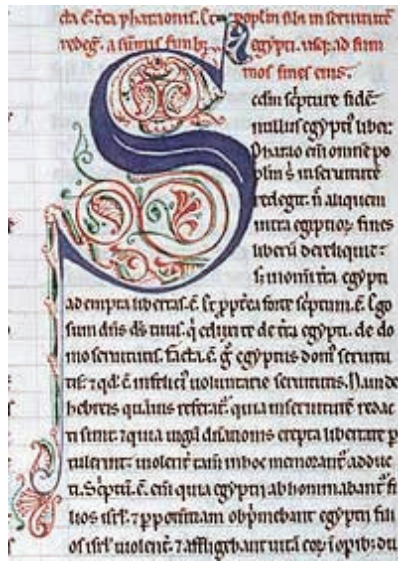 cta .ē. t̄ra pharaonis. Et populm̄ sibi in seruitutē
redeḡ. a summis finib; egypti. usq; ad sum
mos fines eius.
Scđm sc̄pture fidē
nullus egyptiꝰ liber.
Pharao eni͂ omnē po
pulm̄ s̄ in seruitutē
redegit. n̄ aliquem
intra egiptioꝝ fines
liberū dereliquit:
s; in omni t̄ra egypti
adempta libertas .ē. Et pp̄terea forte sc̄ptum .ē. Ego
sum dn̄s d̄s tuus. q̇ eduxi te de t̄ra egypti. de do
mo seruitutis. facta .ē. g̊ egyptus domꝰ seruitu
tis: ⁊ qđ .ē. infeliciꝰ uoluntarie seruitutis. N̄ de
hebreis quāuis referat᷑. quia in seruitutē redac
ti sunt: ⁊ quia iugū dn̄ationis erepta libertate ꝑ
tulerint: uiolent᷑ tam̄ in hoc memorant᷑ adduc
ti. Sc̄ptū .ē. eni͂ quia egyptii abhominabant᷑ fi
lios isrł. ⁊ ꝑ potentiam obp̄mebant egyptii fili
os isrł uiolent᷑. ⁊ affligebant uitā eoꝝ ī opib; du